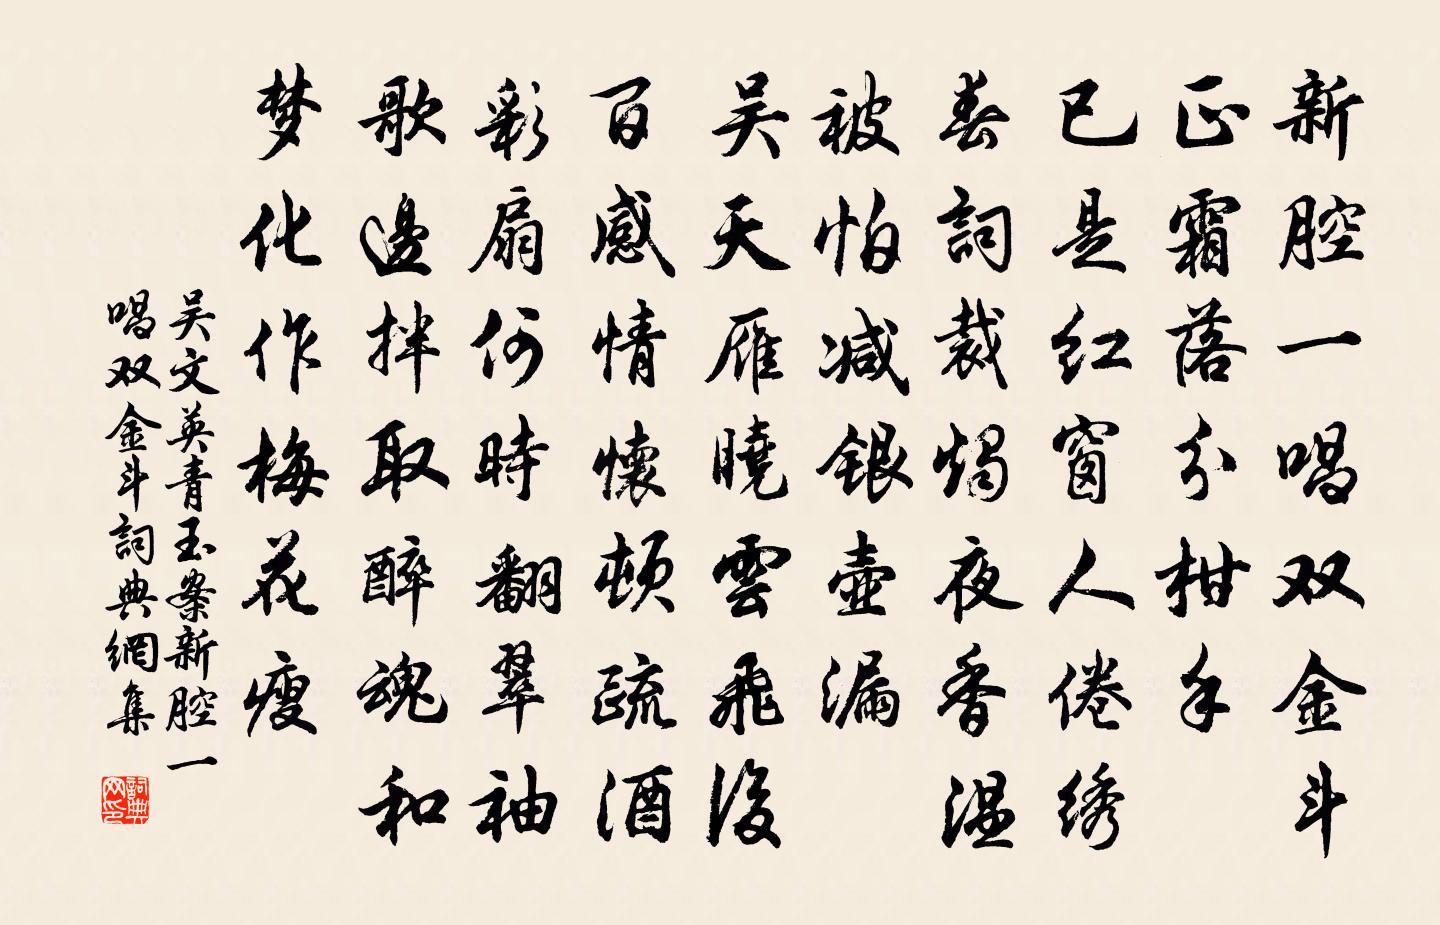 新腔一唱双金斗
正霜落分柑手
已是红窗人倦绣
春詞裁燭夜香温
被怕减銀壶漏
吴天雁曉雲飛後
百感情懷頓疏酒
彩扇何時翻翠袖
歌邊拌取醉魂和
梦化作梅花瘦
吴文英青玉案新腔一
唱双金斗詞典網集
詞典
网印